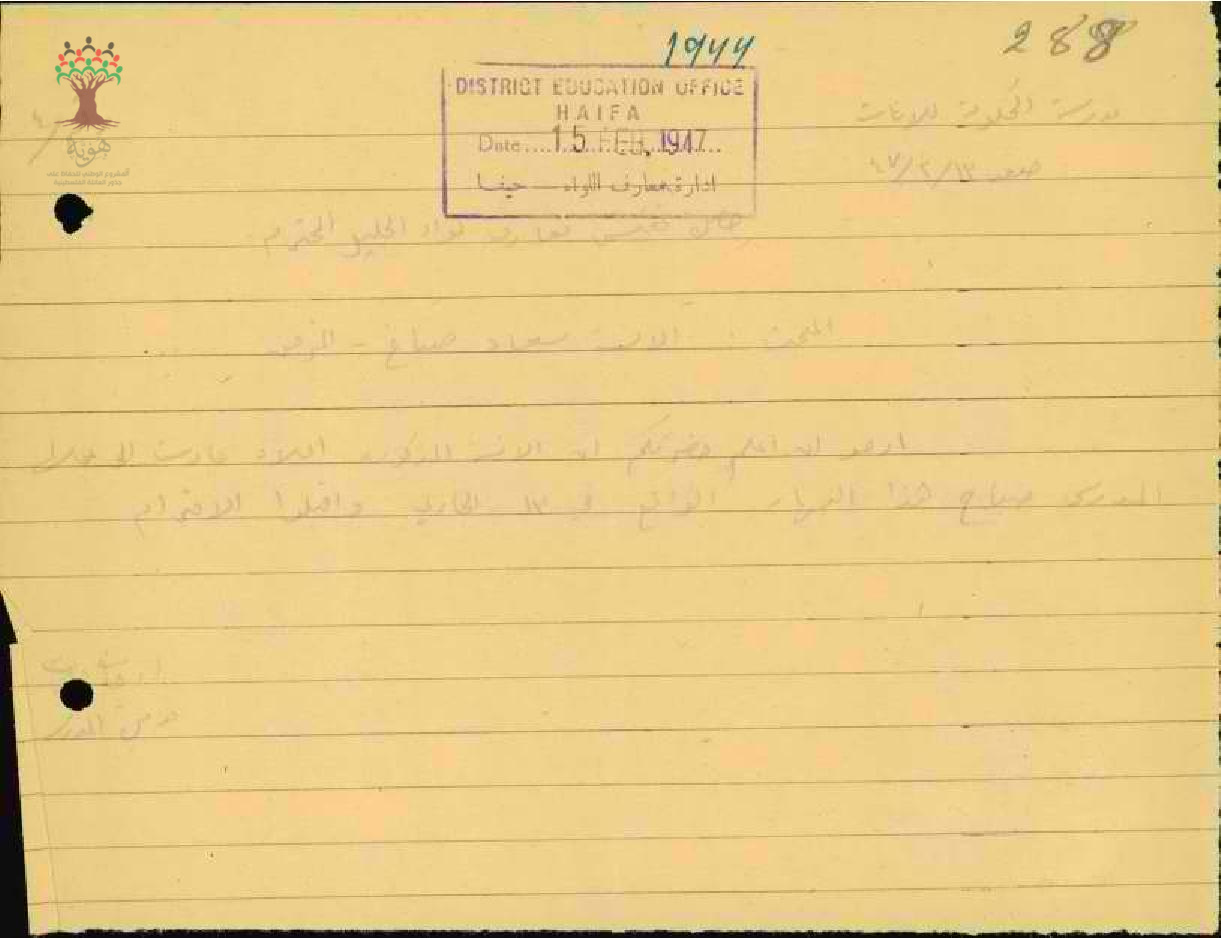 288
1944
مدرسة الحكومة للبنات
صفد ١٣/٢/٤٧
DISTRICT EDUCATION OFFICE
HAIFA
Date....15 FEB. 1947..
ادارة معارف اللواء — حيفا
هوية
المشروع الوطني للحفاظ على
جذور العائلة الفلسطينية
مفتش معارف لواء الجليل المحترم
البحث : الآنسة سعاد صباغ -
ارجو ان اعلم حضرتكم ان الآنسة المذكورة اعلاه عادت الى عملها
المدرسي صباح هذا النهار الواقع في ١٣ الجاري واقبلوا الاحترام